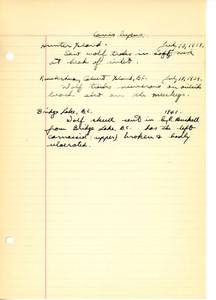 Canis lupus
Hunter Island. July 13, 1939.
Saw wolf tracks in soft mud
at head of inlet.
Island, B.C. July 18, 1939.
Wolf tracks numerous on outside
beach and on the muskegs.
Bridge Lake, B.C. 1941.
Wolf skull sent in by
from Bridge Lake, B.C. has the left
carnassial (upper) broken & badly
ulcerated.